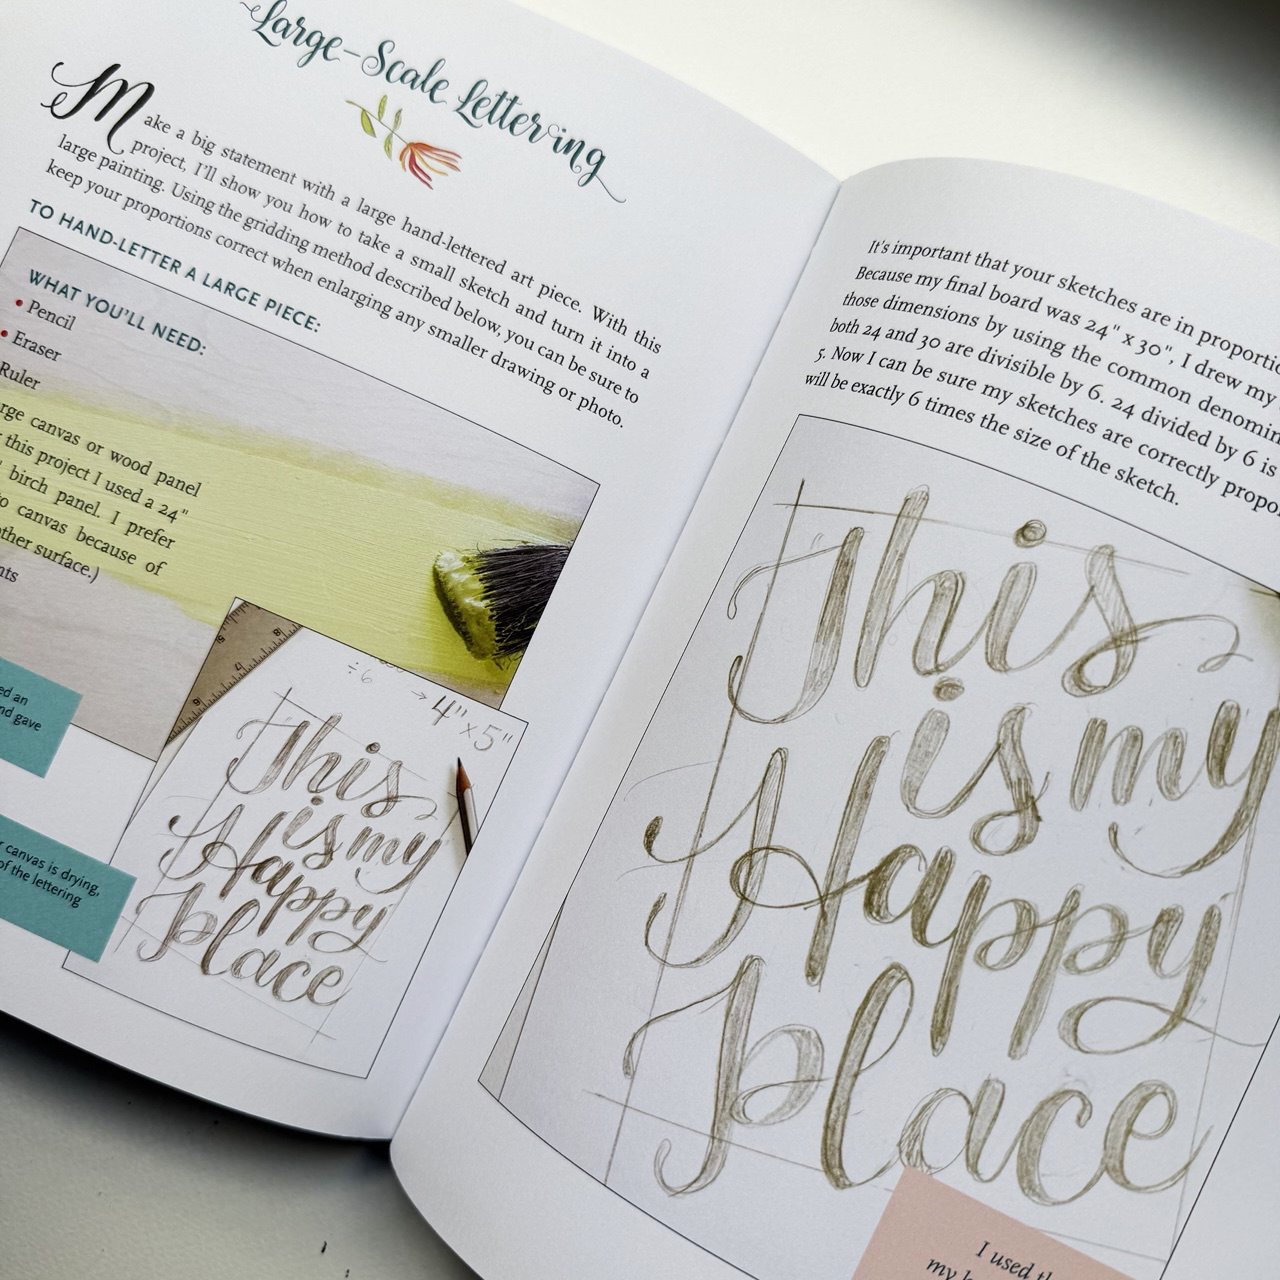 Large-Scale Lettering
Make a big statement with a large hand-lettered art piece. With this
project, I'll show you how to take a small sketch and turn it into a
large painting. Using the gridding method described below, you can be sure to
keep your proportions correct when enlarging any smaller drawing or photo.
TO HAND-LETTER A LARGE PIECE:
WHAT YOU'LL NEED:
• Pencil
• Eraser
Ruler
canvas or wood panel
this project I used a 24"
birch panel. I prefer
canvas because of
other surface.)
an
gave
canvas is drying,
of the lettering
5
4
6
÷6
→ 4" x 5"
This
is my
Happy
Place
It's important that your sketches are in
Because my final board was 24" x 30", I drew my
those dimensions by using the common
both 24 and 30 are divisible by 6. 24 divided by 6 is
5. Now I can be sure my sketches are correctly
will be exactly 6 times the size of the sketch.
This
is my
Happy
Place
I used
my